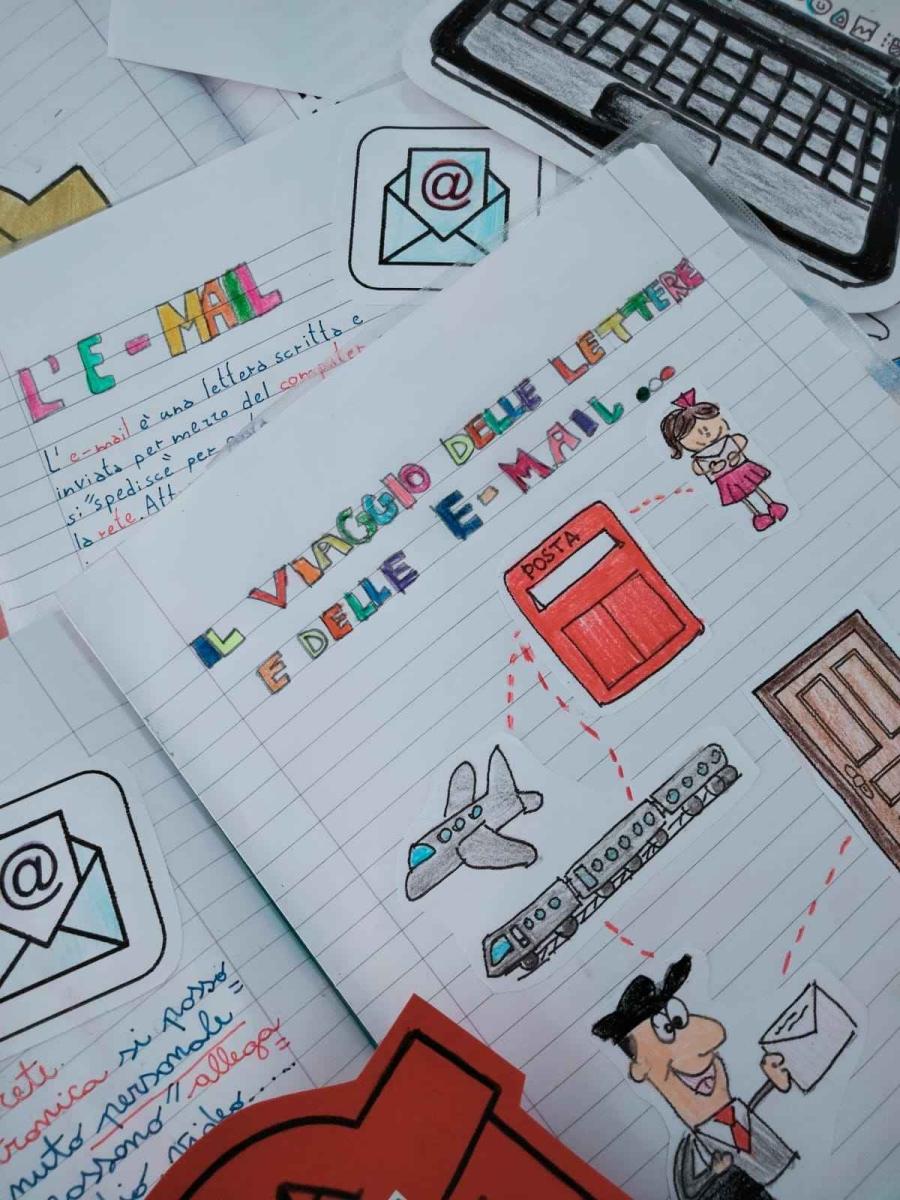 @
L'E-MAIL
L'e-mail è una lettera scritta e
inviata per mezzo del computer
si "spedisce" per
la rete.
IL VIAGGIO DELLE LETTERE
E DELLE E-MAIL...
POSTA
@
rete.
si possó
personale
" allega
video.....